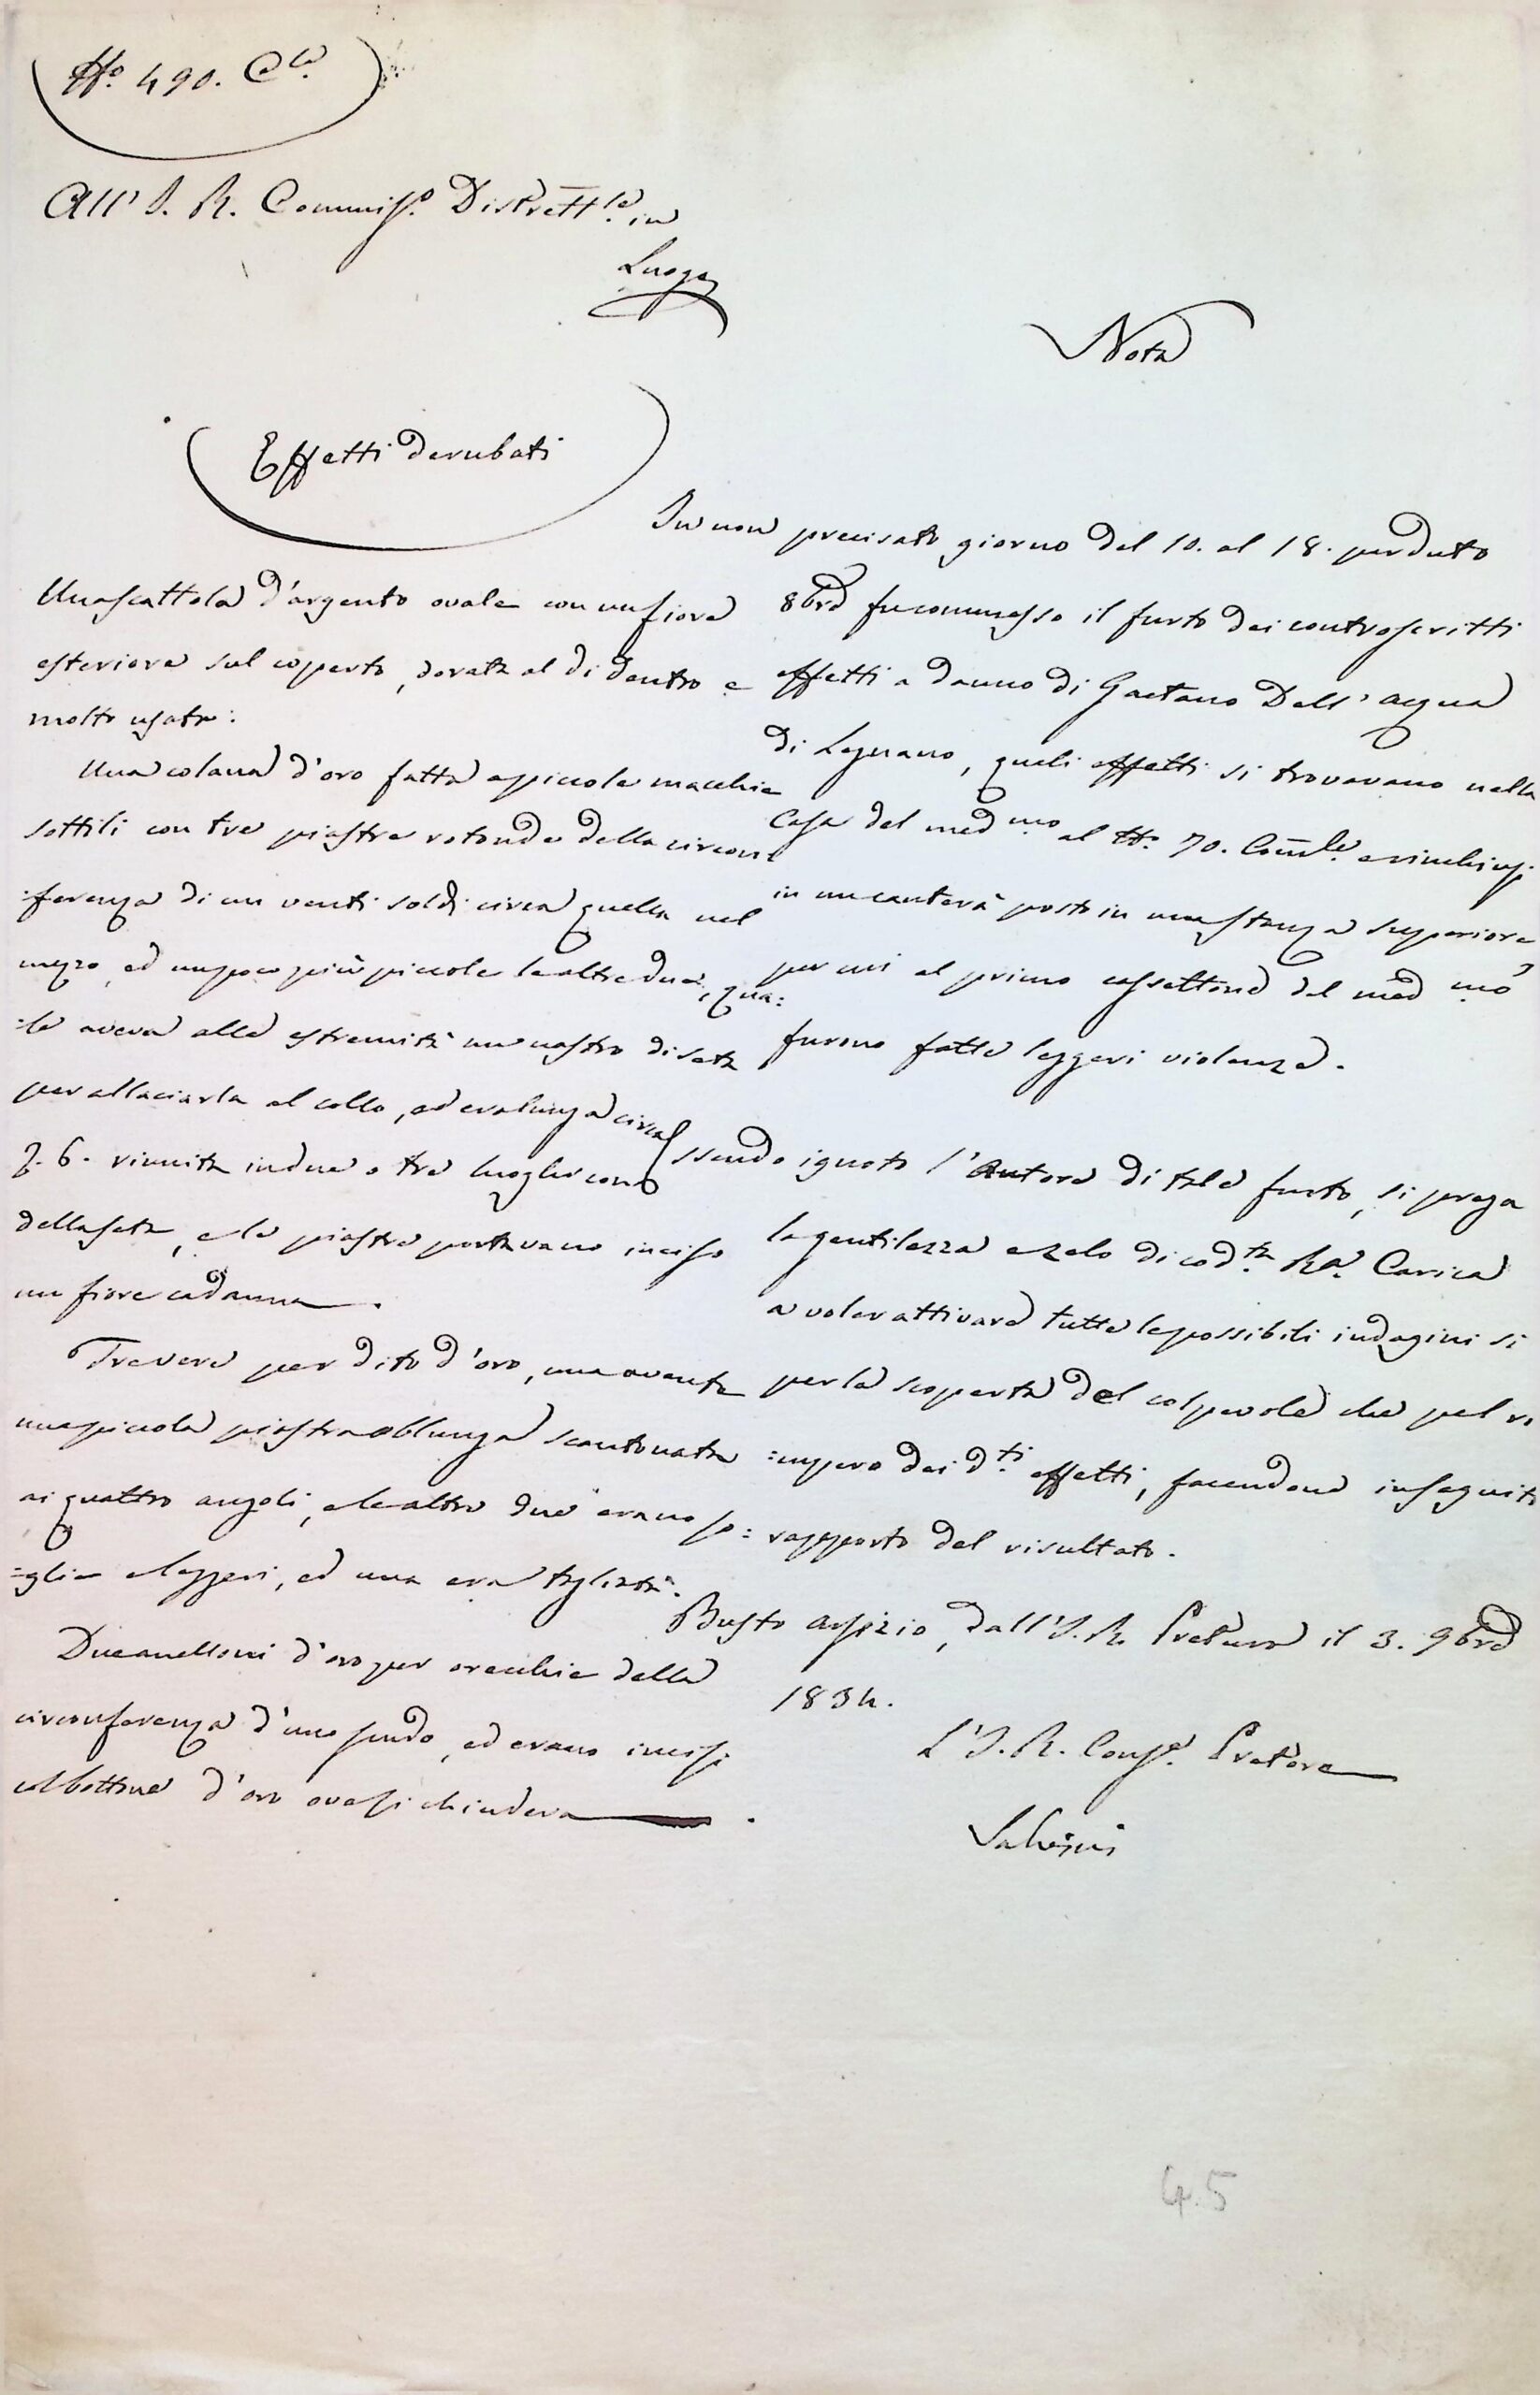 N.º 490. C.le
All' I. R. Commiss.º Distrett.le in
Luogo
Nota
Effetti derubati
Una scattola d'argento ovale con un fiore
esteriore sul coperto, dorata al di dentro e
molto usata:
Una colana d'oro fatta a piccole macchie
sottili con tre piastre rotonde della circon
:ferenza di un venti soldi circa quella nel
mezzo, ed un poco più piccole le altre due, qua:
:le aveva alle estremità un nastro di seta
per allaciarla al collo, ed era lunga circa
6. riunita in due o tre luoghi con
della seta, e le piastre portavano inciso
un fiore cadauna.
Tre vere per dito d'oro, una avente
una piccola piastra oblunga scantonata
ai quattro angoli, e le altre due erano spo:
:glie e leggeri, ed una era tagliata.
Due anelloni d'oro per orecchie della
circonferenza d'uno scudo, ed erano incisi
col bottone d'oro ove si chiudeva.
In non precisato giorno del 10. al 18. perduto
8bre fu commesso il furto dei controscritti
effetti a danno di Gaetano Dell'acqua
di Legnano, quali effetti si trovavano nella
Casa del med.mo al N.º 70. Com.le e rinchiusi
in un canterà posto in una stanza superiore
per cui al primo cassettone del med.mo
furono fatte leggeri violenze.
Essendo ignoto l'Autore di tale furto, si prega
la gentilezza e zelo di cod.ta R.a Carica
a voler attivare tutte le possibili indagini si
per la scoperta del colpevole che pel ri
:cupero dei d.ti effetti, facendone in seguito
rapporto del risultato.
Busto Arsizio, dall'I. R. Pretura il 3. 9bre
1834.
L'I. R. Cons.e Pretore
Salvini
4.5